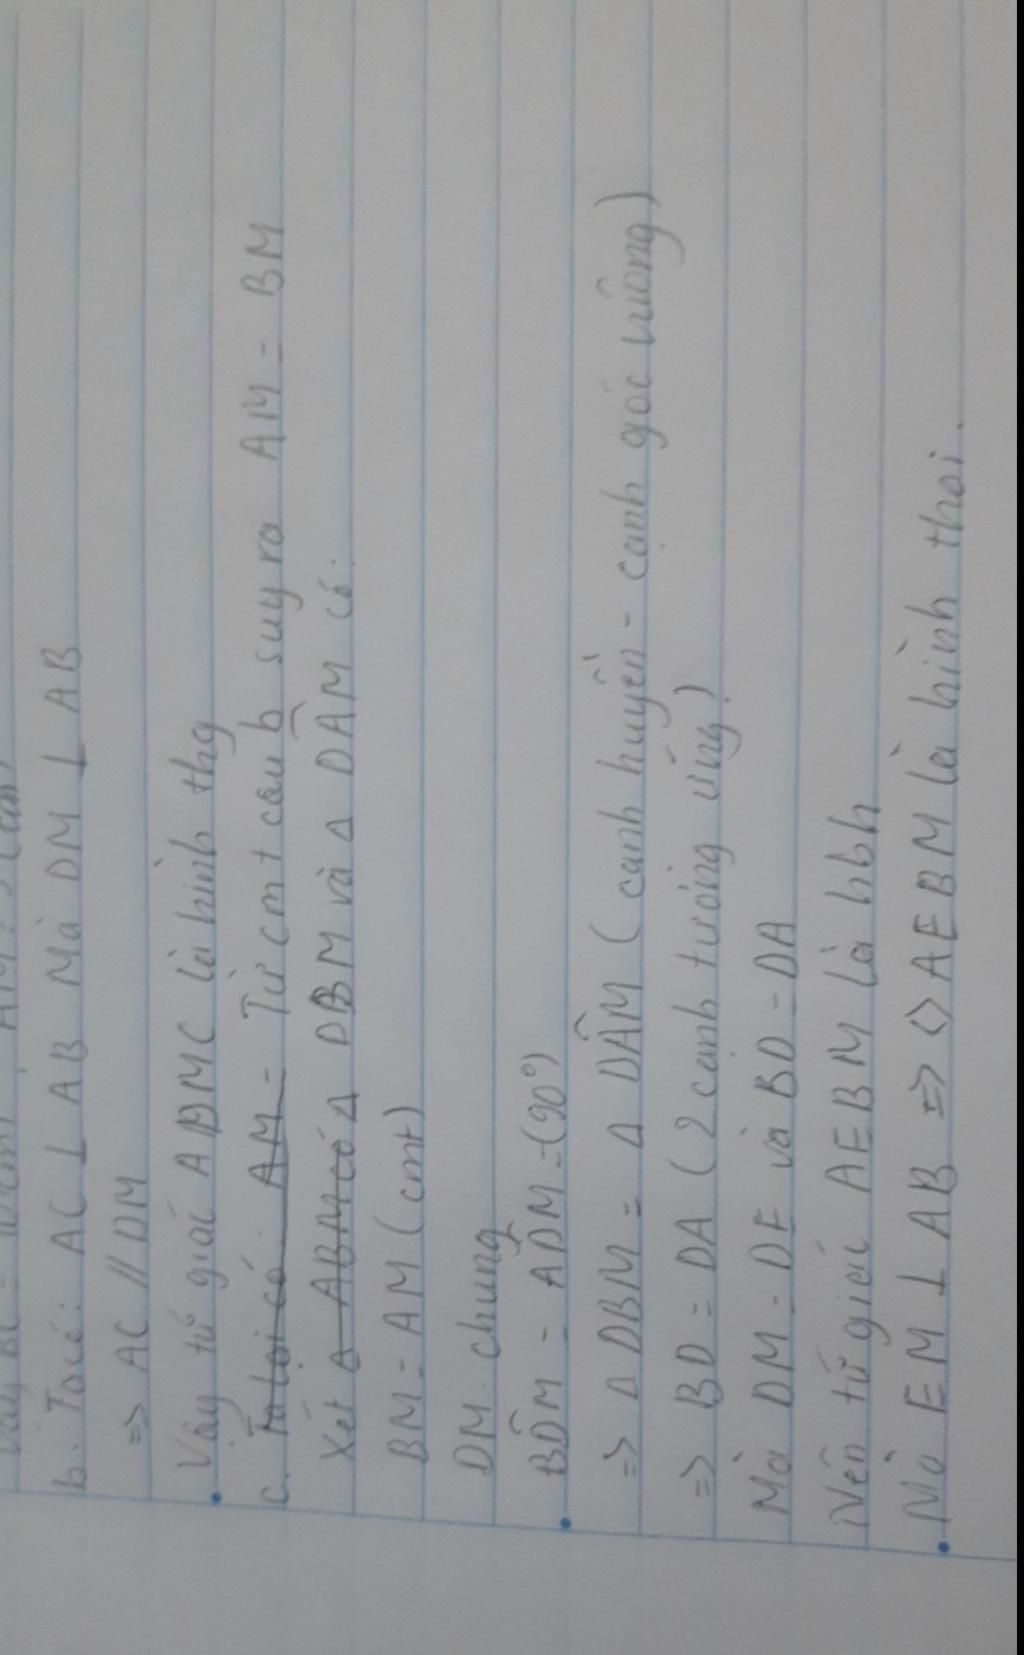 b. Ta có: AC ⊥ AB Mà DM ⊥ AB
=> AC // DM
Vậy tứ giác ADMC là hình thg
c. Ta lại có: AM = Từ cmt câu b suy ra AM = BM
Xét Δ ABM có Δ DBM và Δ DAM có:
BM = AM (cmt)
DM chung
BDM = ADM = (90°)
=> Δ DBM = Δ DAM (cạnh huyền - cạnh góc vuông)
=> BD = DA (2 cạnh tương ứng)
Mà DM = DE và BD = DA
Nên tứ giác AEBM là hbh
Mà EM ⊥ AB => <> AEBM là hình thoi.